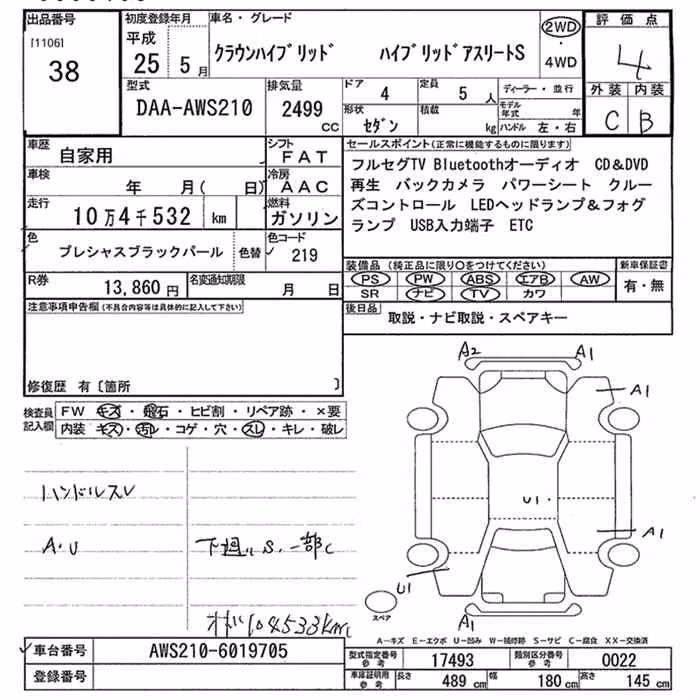 出品番号
[1106]
38
初度登録年月
平成
25 5 月
車名・グレード
クラウンハイブリッド ハイブリッドアスリートS
2WD
・
4WD
評価点
4
外装 内装
C B
型式
DAA-AWS210
排気量
2499
CC
ドア 4
定員 5 人
形状
セダン
積載
kg
ディーラー・並行
モデル年式 年
ハンドル 左・右
車歴
自家用
シフト
FAT
車検
年 月( 日)
冷房
AAC
走行
10万4千532 km
燃料
ガソリン
色
プレシャスブラックパール
色替
色コード
219
R券
13,860 円
名変通知期限
月 日
セールスポイント(正常に機能するものに限ります)
フルセグTV Bluetoothオーディオ CD&DVD
再生 バックカメラ パワーシート クルー
ズコントロール LEDヘッドランプ&フォグ
ランプ USB入力端子 ETC
装備品 (純正品に限り○をつけてください)
PS PW ABS エアB AW
SR ナビ TV カワ
新車保証書
有・無
後日品
取説・ナビ取説・スペアキー
注意事項申告欄(不具合内容等は具体的に記入して下さい)
修復歴 有〔箇所 〕
検査員
記入欄
FW キズ・飛石・ヒビ割・リペア跡・×要
内装 キズ・汚レ・コゲ・穴・スレ・キレ・破レ
ハンドルスレ
A・U
下廻りS、一部C
104533km
A2
A1
A1
U1
A1
U1
A1
スペア
A―キズ E―エクボ U―凹み W―補修跡 S―サビ C―腐食 XX―交換済
車台番号
AWS210-6019705
登録番号
型式指定番号
参考
17493
類別区分番号
参考
0022
車庫証明用
参考
長さ 489 cm
幅 180 cm
高さ 145 cm